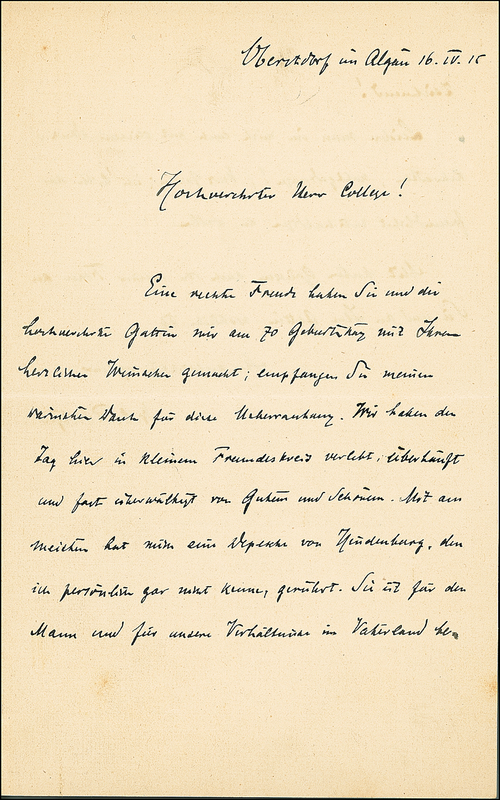 Oberstdorf im Algäu 16. IV. 15
Hochverehrter Herr College!
Eine rechte Freude haben Sie und die
hochverehrte Gattin mir am 70 Geburtstag mit Ihren
herzlichen Wünschen gemacht; empfangen Sie meinen
wärmsten Dank für diese Ueberraschung. Wir haben den
Tag hier in kleinem Freundeskreis verlebt, überhäuft
und fast überwältigt von Gutem und Schönem. Mit am
meisten hat mich eine Depesche von Hindenburg, den
ich persönlich gar nicht kenne, gerührt. Sie ist für den
Mann und für unsere Verhältnisse im Vaterland be-